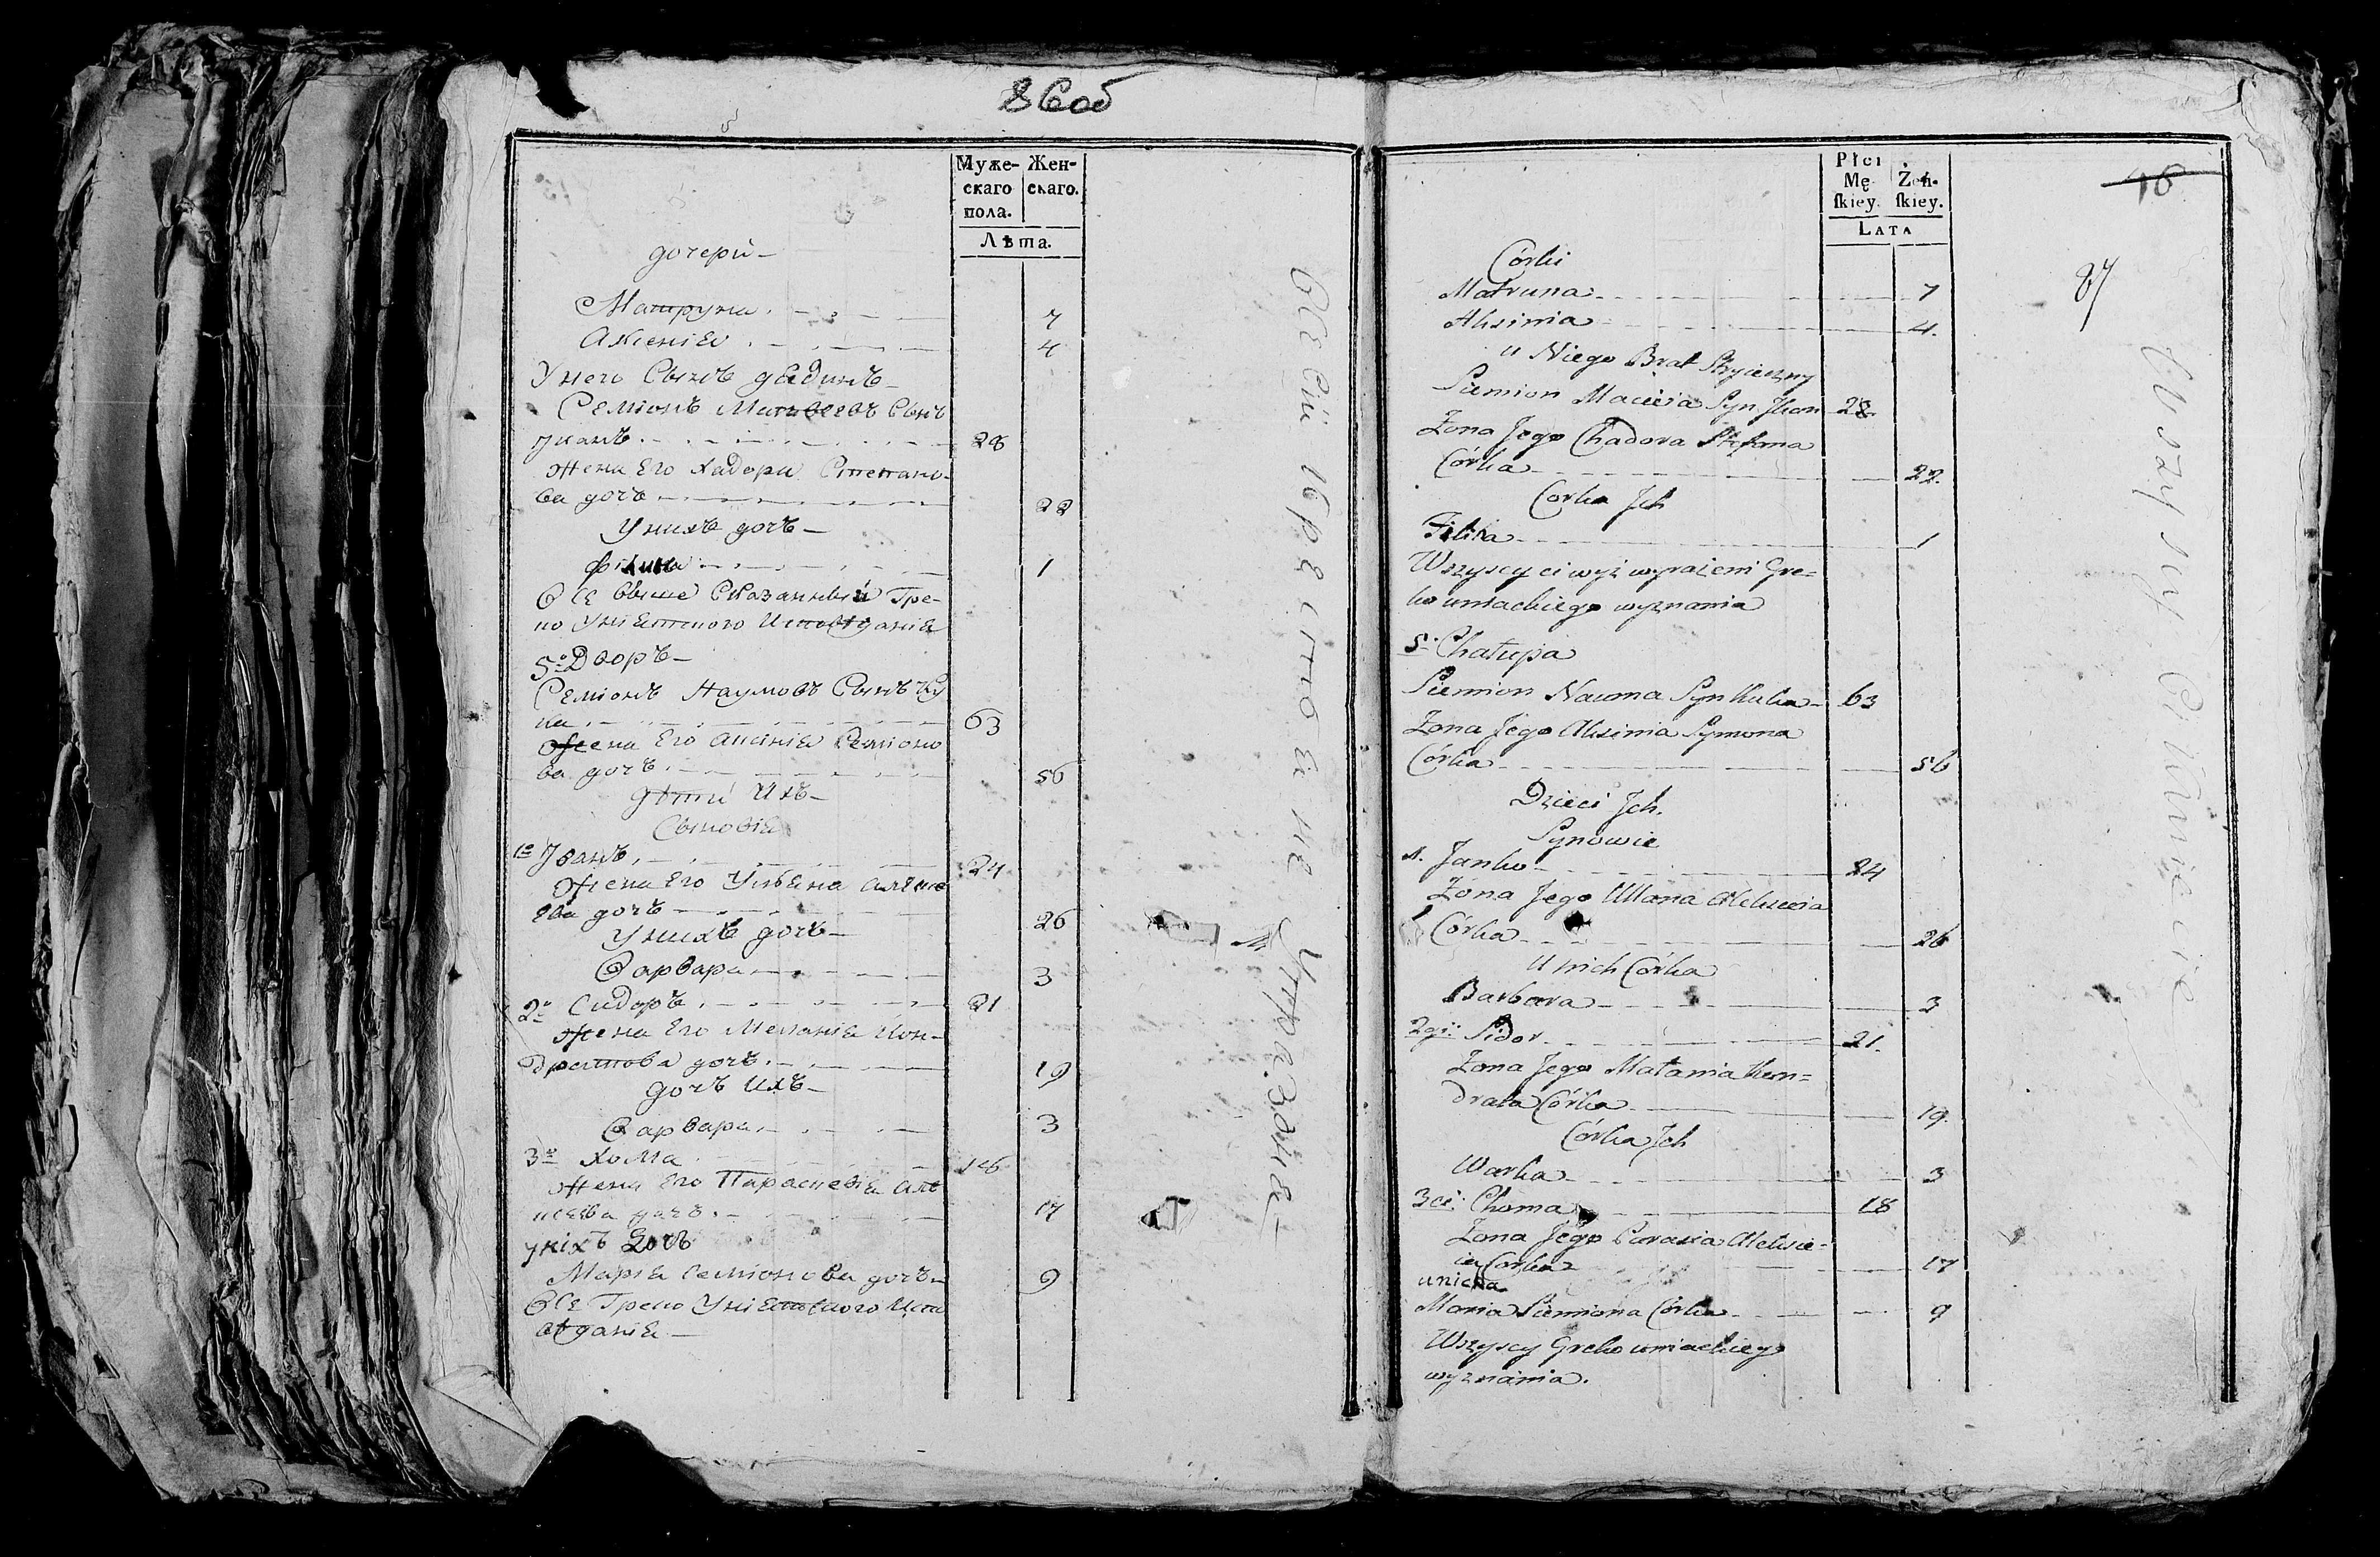 86об
Муже- Жен-
скаго скаго.
пола.
Лѣта.
дочери
Матруна 7
Аксения 4
У него Сынъ
Семіонъ Матвеевъ Сынъ
28
Жена Его Хадора Степано-
ва дочь 22
У нихъ дочь
1
Все выше Сказанный Гре-
ко Униятского Исповѣдания
5о Дворъ
Семіонъ Наумовъ Сынъ Ку
ка 63
Жена Его Аксиния Семіоно
ва дочь 56
дѣти Ихъ
Сыновіа
1о Иванъ 24
Жена Его Ульяна Алексе
ева дочь 26
У нихъ дочь
Варвара 3
2о Сидоръ 21
Жена Его Меланіа Кон-
дратова дочь 19
дочь Ихъ
Варвара 3
3о Хома 18
Жена Его Параскевіа Але
ксеева дочь 17
у ніхъ Дочь
Маріа Семіонова дочь 9
Все Греко Униятского Испо
вѣданіа
Все сіи
Płci
Mę- Żeń-
ſkiey. ſkiey.
LATA
46
87
Córki
Matruna 7
Aksinia 4
u Niego Brat Stryieczny
Siemion Macieia Syn 28
Żona Jego Chadora Stefana
Córka 22
Corka Jch
1
Wszyscy ci wyż wyrażeni Gre=
ko uniackiego wyznania
5. Chałupa
Siemion Nauma Syn Kuka 63
Żona Jego Aksinia Symona
Córka 56
Dzieci Jch.
Synowie
1. Janko 24
Żona Jego Ullana Alekseia
Córka 26
U nich Córka
Barbara 3
2gi: Sidor 21
Żona Jego Małania Kon=
drata Córka 19
Córka Jch
Warka 3
3ci: Choma 18
Żona Jego Parasia Aleksie=
ia Corka 17
u nich
Maria Siemiona Córka 9
Wszyscy Greko uniackiego
wyznania.
Wszyscy Ci Unici